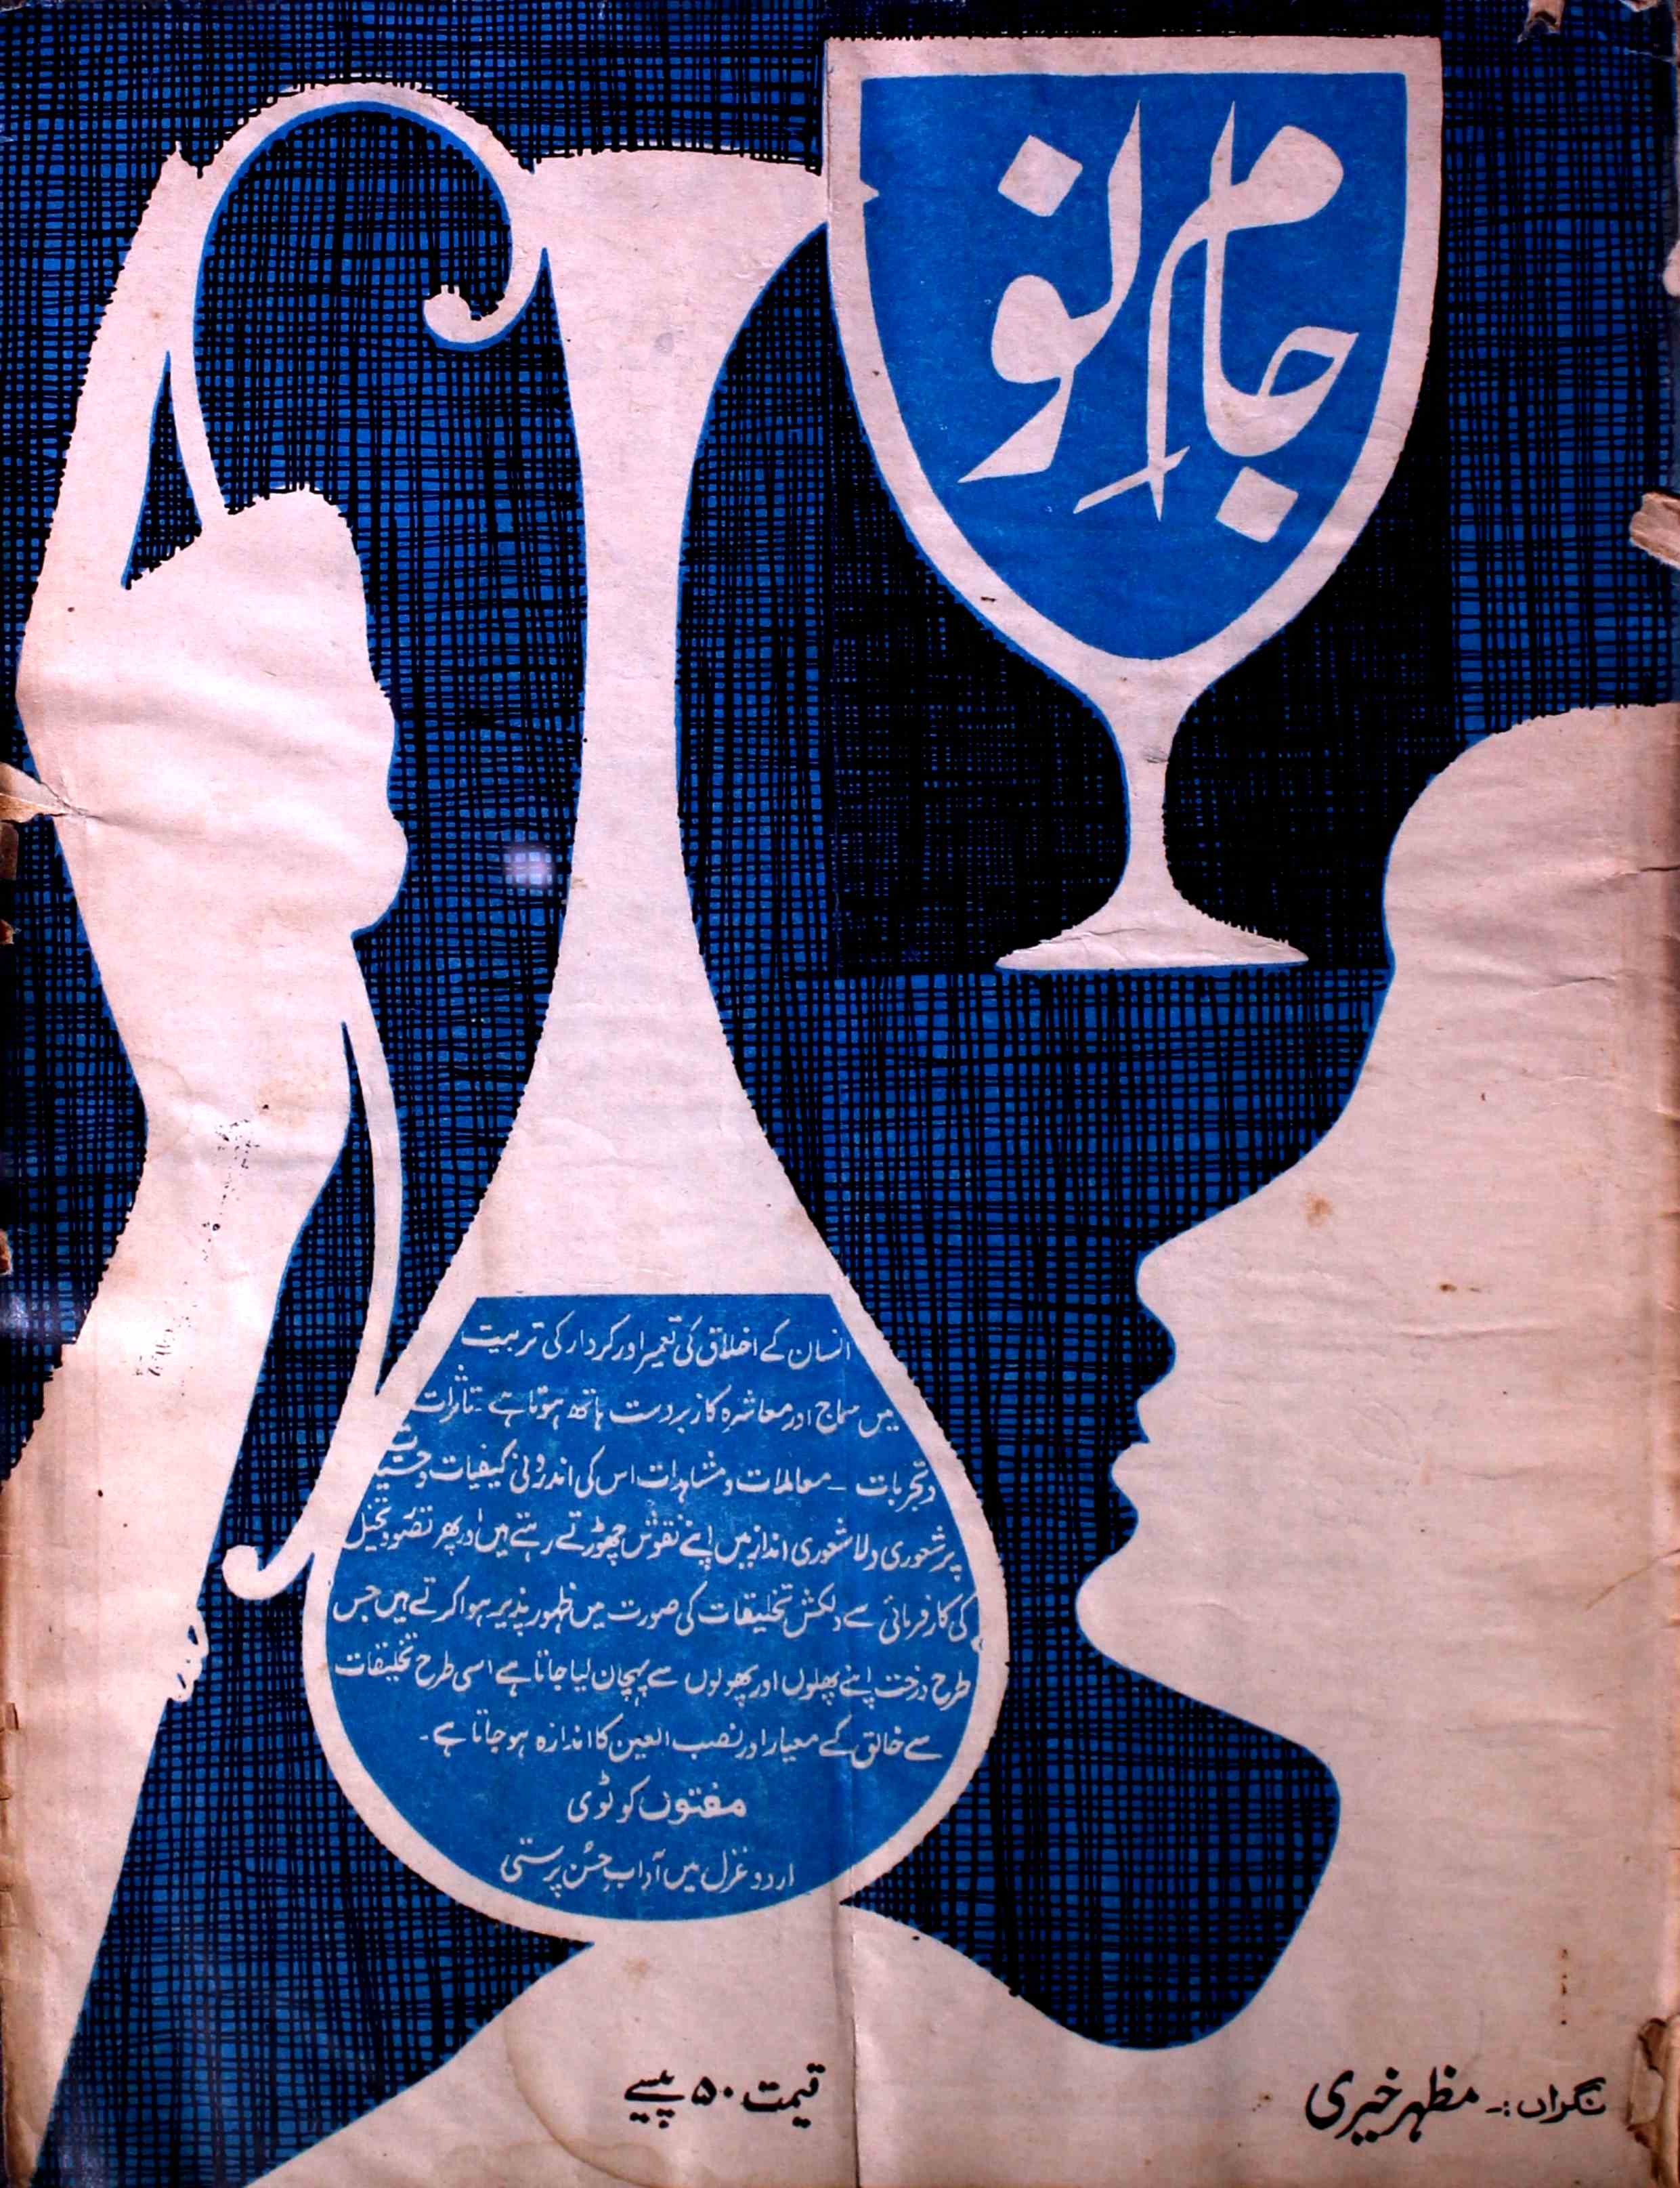 جامِ نو
انسان کے اخلاق کی تعمیر اور کردار کی تربیت
میں سماج اور معاشرہ کا زبردست ہاتھ ہوتا ہے ۔ تاثرات
و تجربات ۔ معاملات و مشاہدات اس کی اندرونی کیفیات و حسیات
پر شعوری و لاشعوری انداز میں اپنے نقوش چھوڑتے رہتے ہیں اور پھر تصور و تخیل
کی کارفرمائی سے دلکش تخلیقات کی صورت میں ظہور پذیر ہوا کرتے ہیں جس
طرح درخت اپنے پھلوں اور پھولوں سے پہچان لیا جاتا ہے اسی طرح تخلیقات
سے خالق کے معیار اور نصب العین کا اندازہ ہوجاتا ہے ۔
مفتوں کوٹوی
اردو غزل میں آدابِ حُسن پرستی
نگراں :۔ مظہر خیری
قیمت ۵۰ پیسے